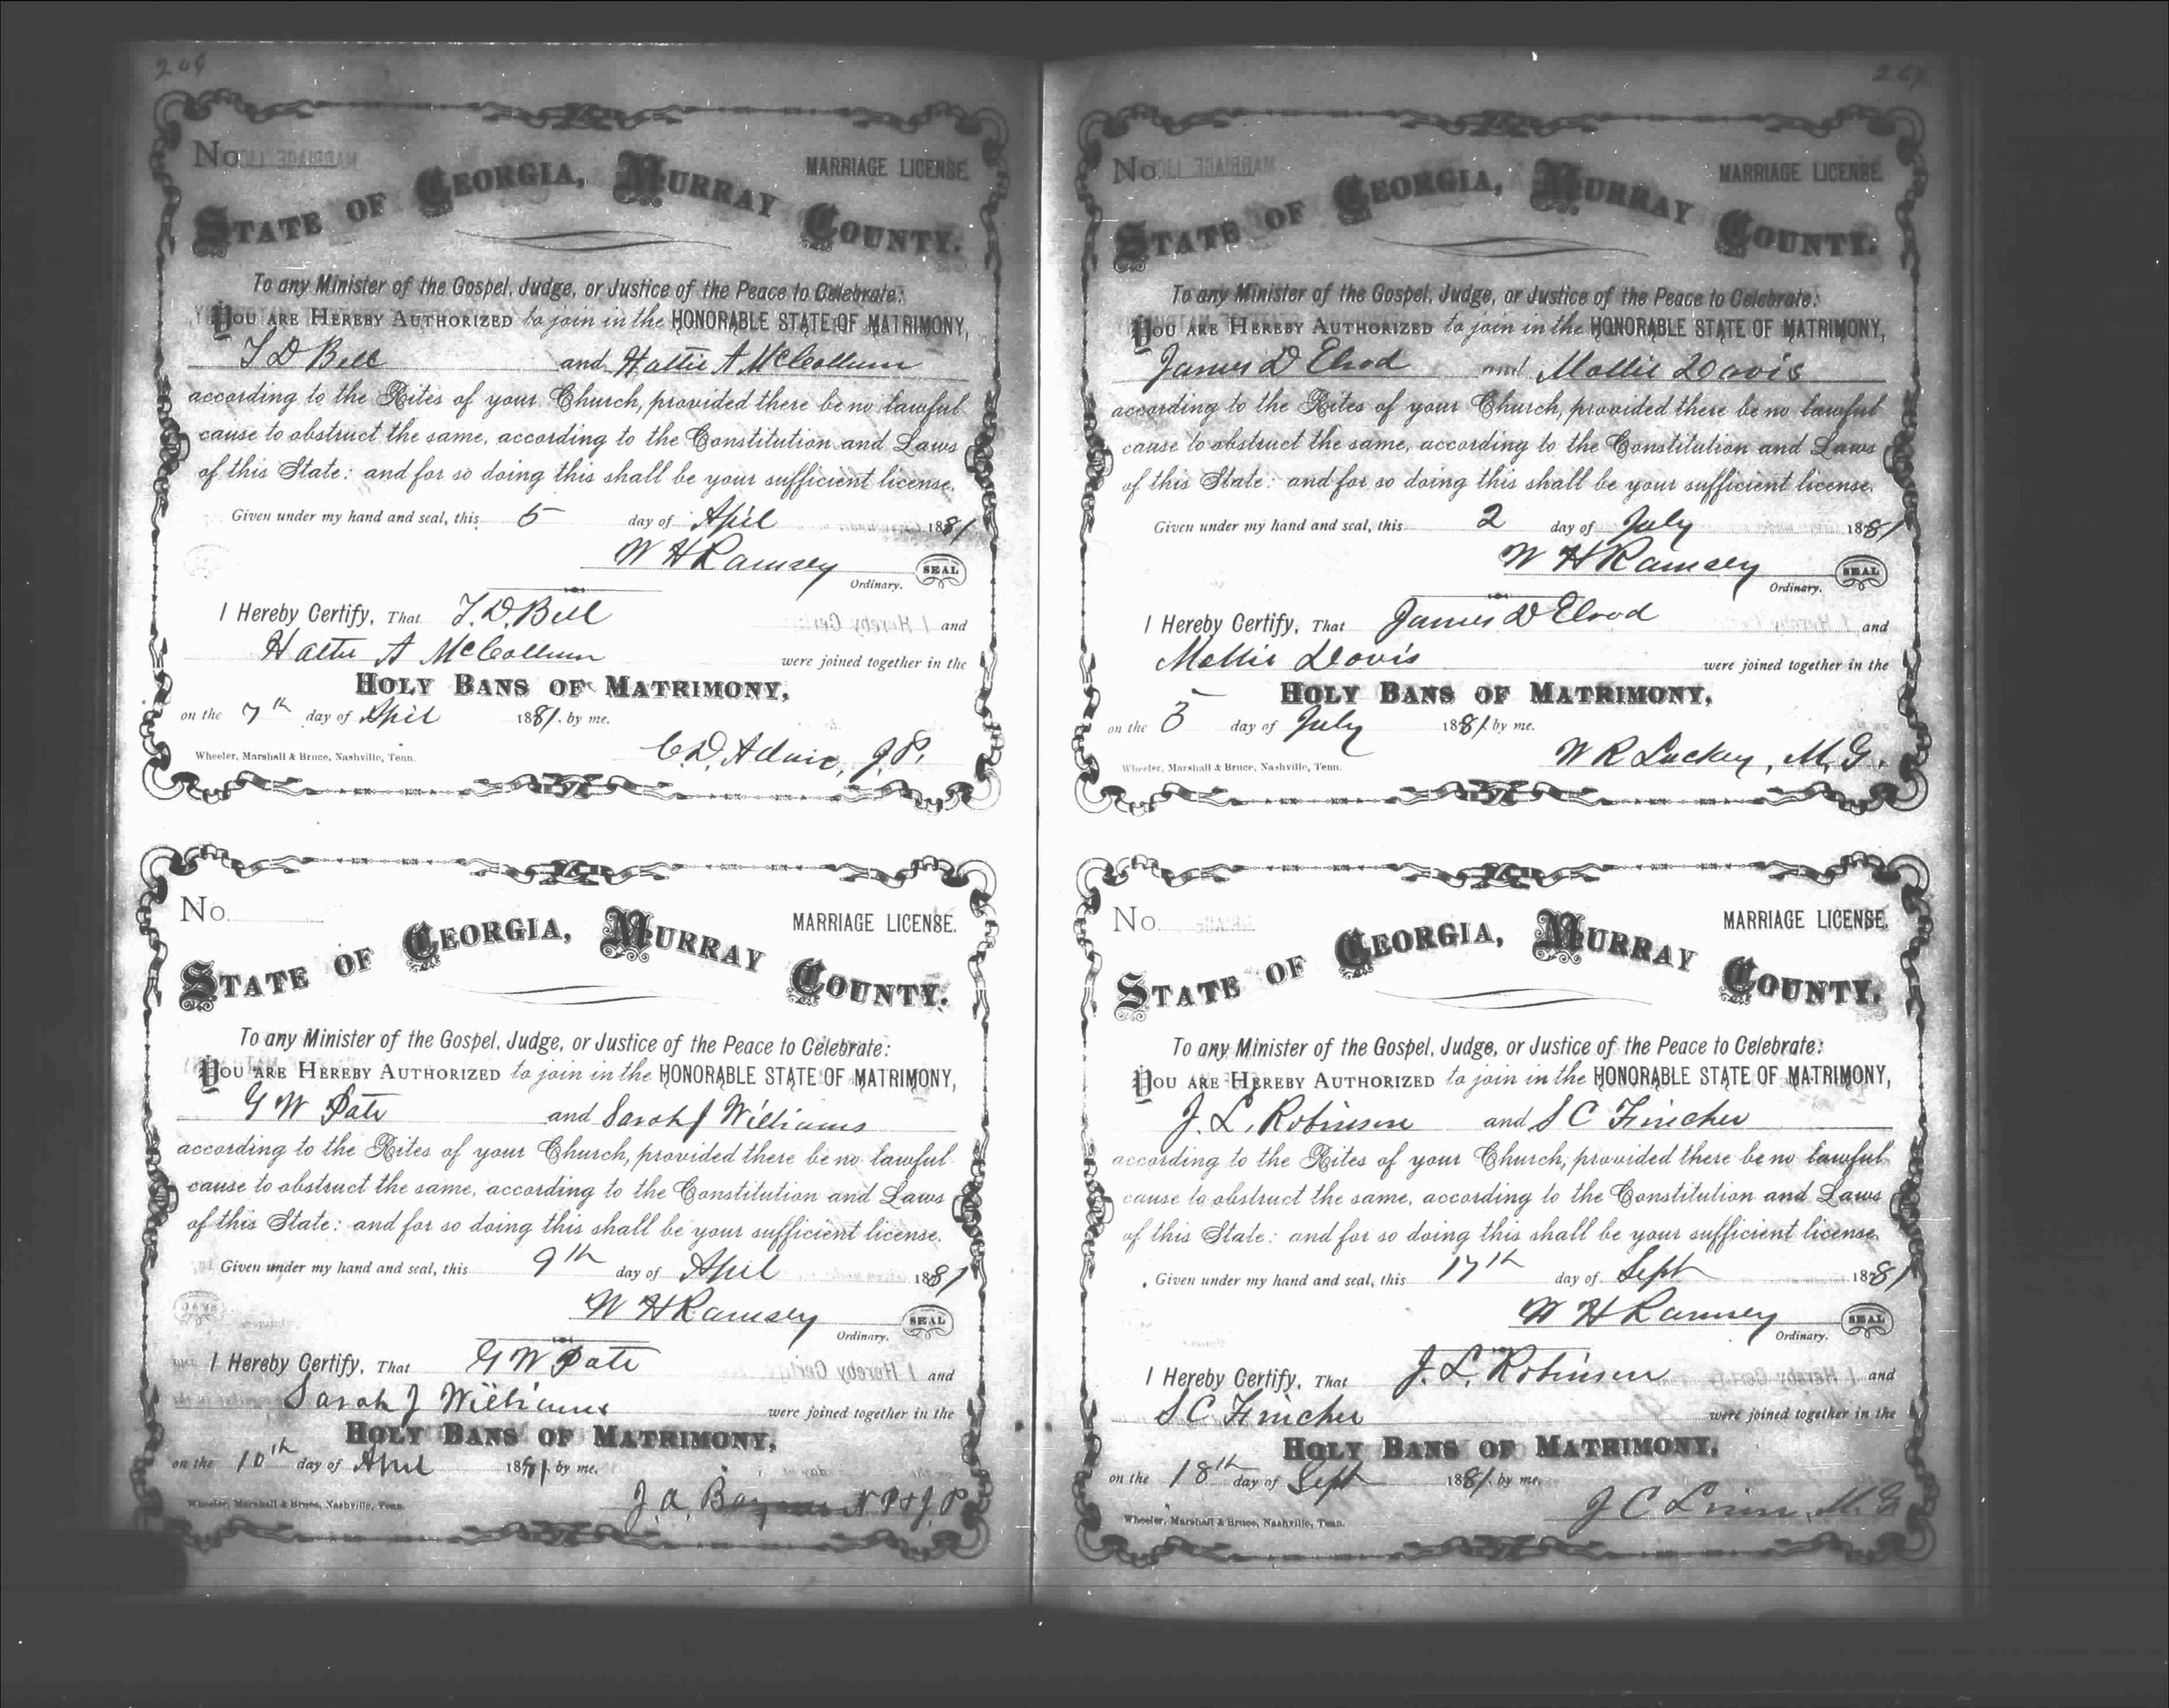 No.
MARRIAGE LICENSE.
STATE OF GEORGIA, MURRAY COUNTY.
To any Minister of the Gospel, Judge, or Justice of the Peace to Celebrate:
YOU ARE HEREBY AUTHORIZED to join in the HONORABLE STATE OF MATRIMONY,
T D Bell and Hattie A McCollum
according to the Rites of your Church, provided there be no lawful
cause to obstruct the same, according to the Constitution and Laws
of this State: and for so doing this shall be your sufficient license.
Given under my hand and seal, this 5 day of April 1881
W H Ramsey
Ordinary.
SEAL
I Hereby Certify, That T. D. Bell and
Hattie A McCollum were joined together in the
HOLY BANS OF MATRIMONY,
on the 7th day of April 1881. by me.
C. D. Adair, J. P.
Wheeler, Marshall & Bruce, Nashville, Tenn.
No.
MARRIAGE LICENSE.
STATE OF GEORGIA, MURRAY COUNTY.
To any Minister of the Gospel, Judge, or Justice of the Peace to Celebrate:
YOU ARE HEREBY AUTHORIZED to join in the HONORABLE STATE OF MATRIMONY,
G W Pate and Sarah J Williams
according to the Rites of your Church, provided there be no lawful
cause to obstruct the same, according to the Constitution and Laws
of this State: and for so doing this shall be your sufficient license.
Given under my hand and seal, this 9th day of April 1881
W H Ramsey
Ordinary.
SEAL
I Hereby Certify, That G W Pate and
Sarah J Williams were joined together in the
HOLY BANS OF MATRIMONY,
on the 10th day of April 1881. by me.
J. A. N P & J. P
Wheeler, Marshall & Bruce, Nashville, Tenn.
267
No.
MARRIAGE LICENSE.
STATE OF GEORGIA, MURRAY COUNTY.
To any Minister of the Gospel, Judge, or Justice of the Peace to Celebrate:
YOU ARE HEREBY AUTHORIZED to join in the HONORABLE STATE OF MATRIMONY,
James D Elrod and Mollie Davis
according to the Rites of your Church, provided there be no lawful
cause to obstruct the same, according to the Constitution and Laws
of this State: and for so doing this shall be your sufficient license.
Given under my hand and seal, this 2 day of July 1881
W H Ramsey
Ordinary.
SEAL
I Hereby Certify, That James D Elrod and
Mollie Davis were joined together in the
HOLY BANS OF MATRIMONY,
on the 3 day of July 1881. by me.
W R Luckey, M. G.
Wheeler, Marshall & Bruce, Nashville, Tenn.
No.
MARRIAGE LICENSE.
STATE OF GEORGIA, MURRAY COUNTY.
To any Minister of the Gospel, Judge, or Justice of the Peace to Celebrate:
YOU ARE HEREBY AUTHORIZED to join in the HONORABLE STATE OF MATRIMONY,
J. L. Robinson and S C Fincher
according to the Rites of your Church, provided there be no lawful
cause to obstruct the same, according to the Constitution and Laws
of this State: and for so doing this shall be your sufficient license.
Given under my hand and seal, this 17th day of Sept 1881
W H Ramsey
Ordinary.
SEAL
I Hereby Certify, That J. L. Robinson and
S C Fincher were joined together in the
HOLY BANS OF MATRIMONY,
on the 18th day of Sept 1881. by me.
J C M. G
Wheeler, Marshall & Bruce, Nashville, Tenn.